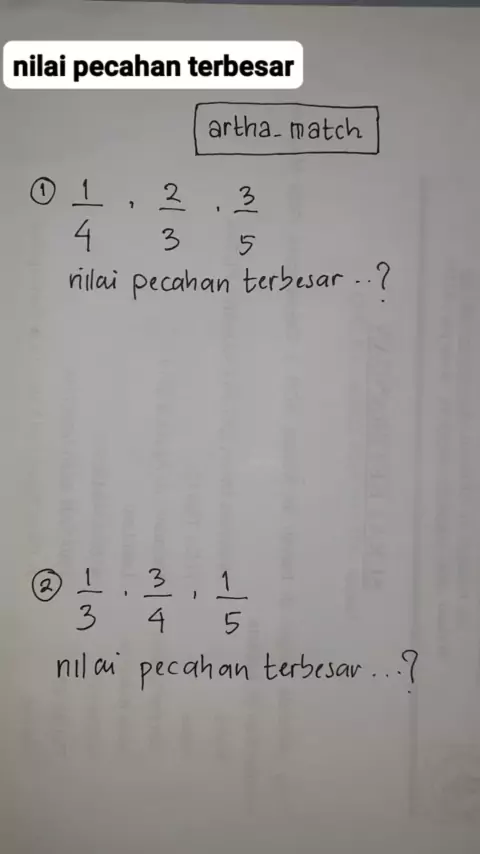 nilai pecahan terbesar
artha_match
① 1/4 , 2/3 , 3/5
nilai pecahan terbesar ..?
② 1/3 , 3/4 , 1/5
nilai pecahan terbesar ...?